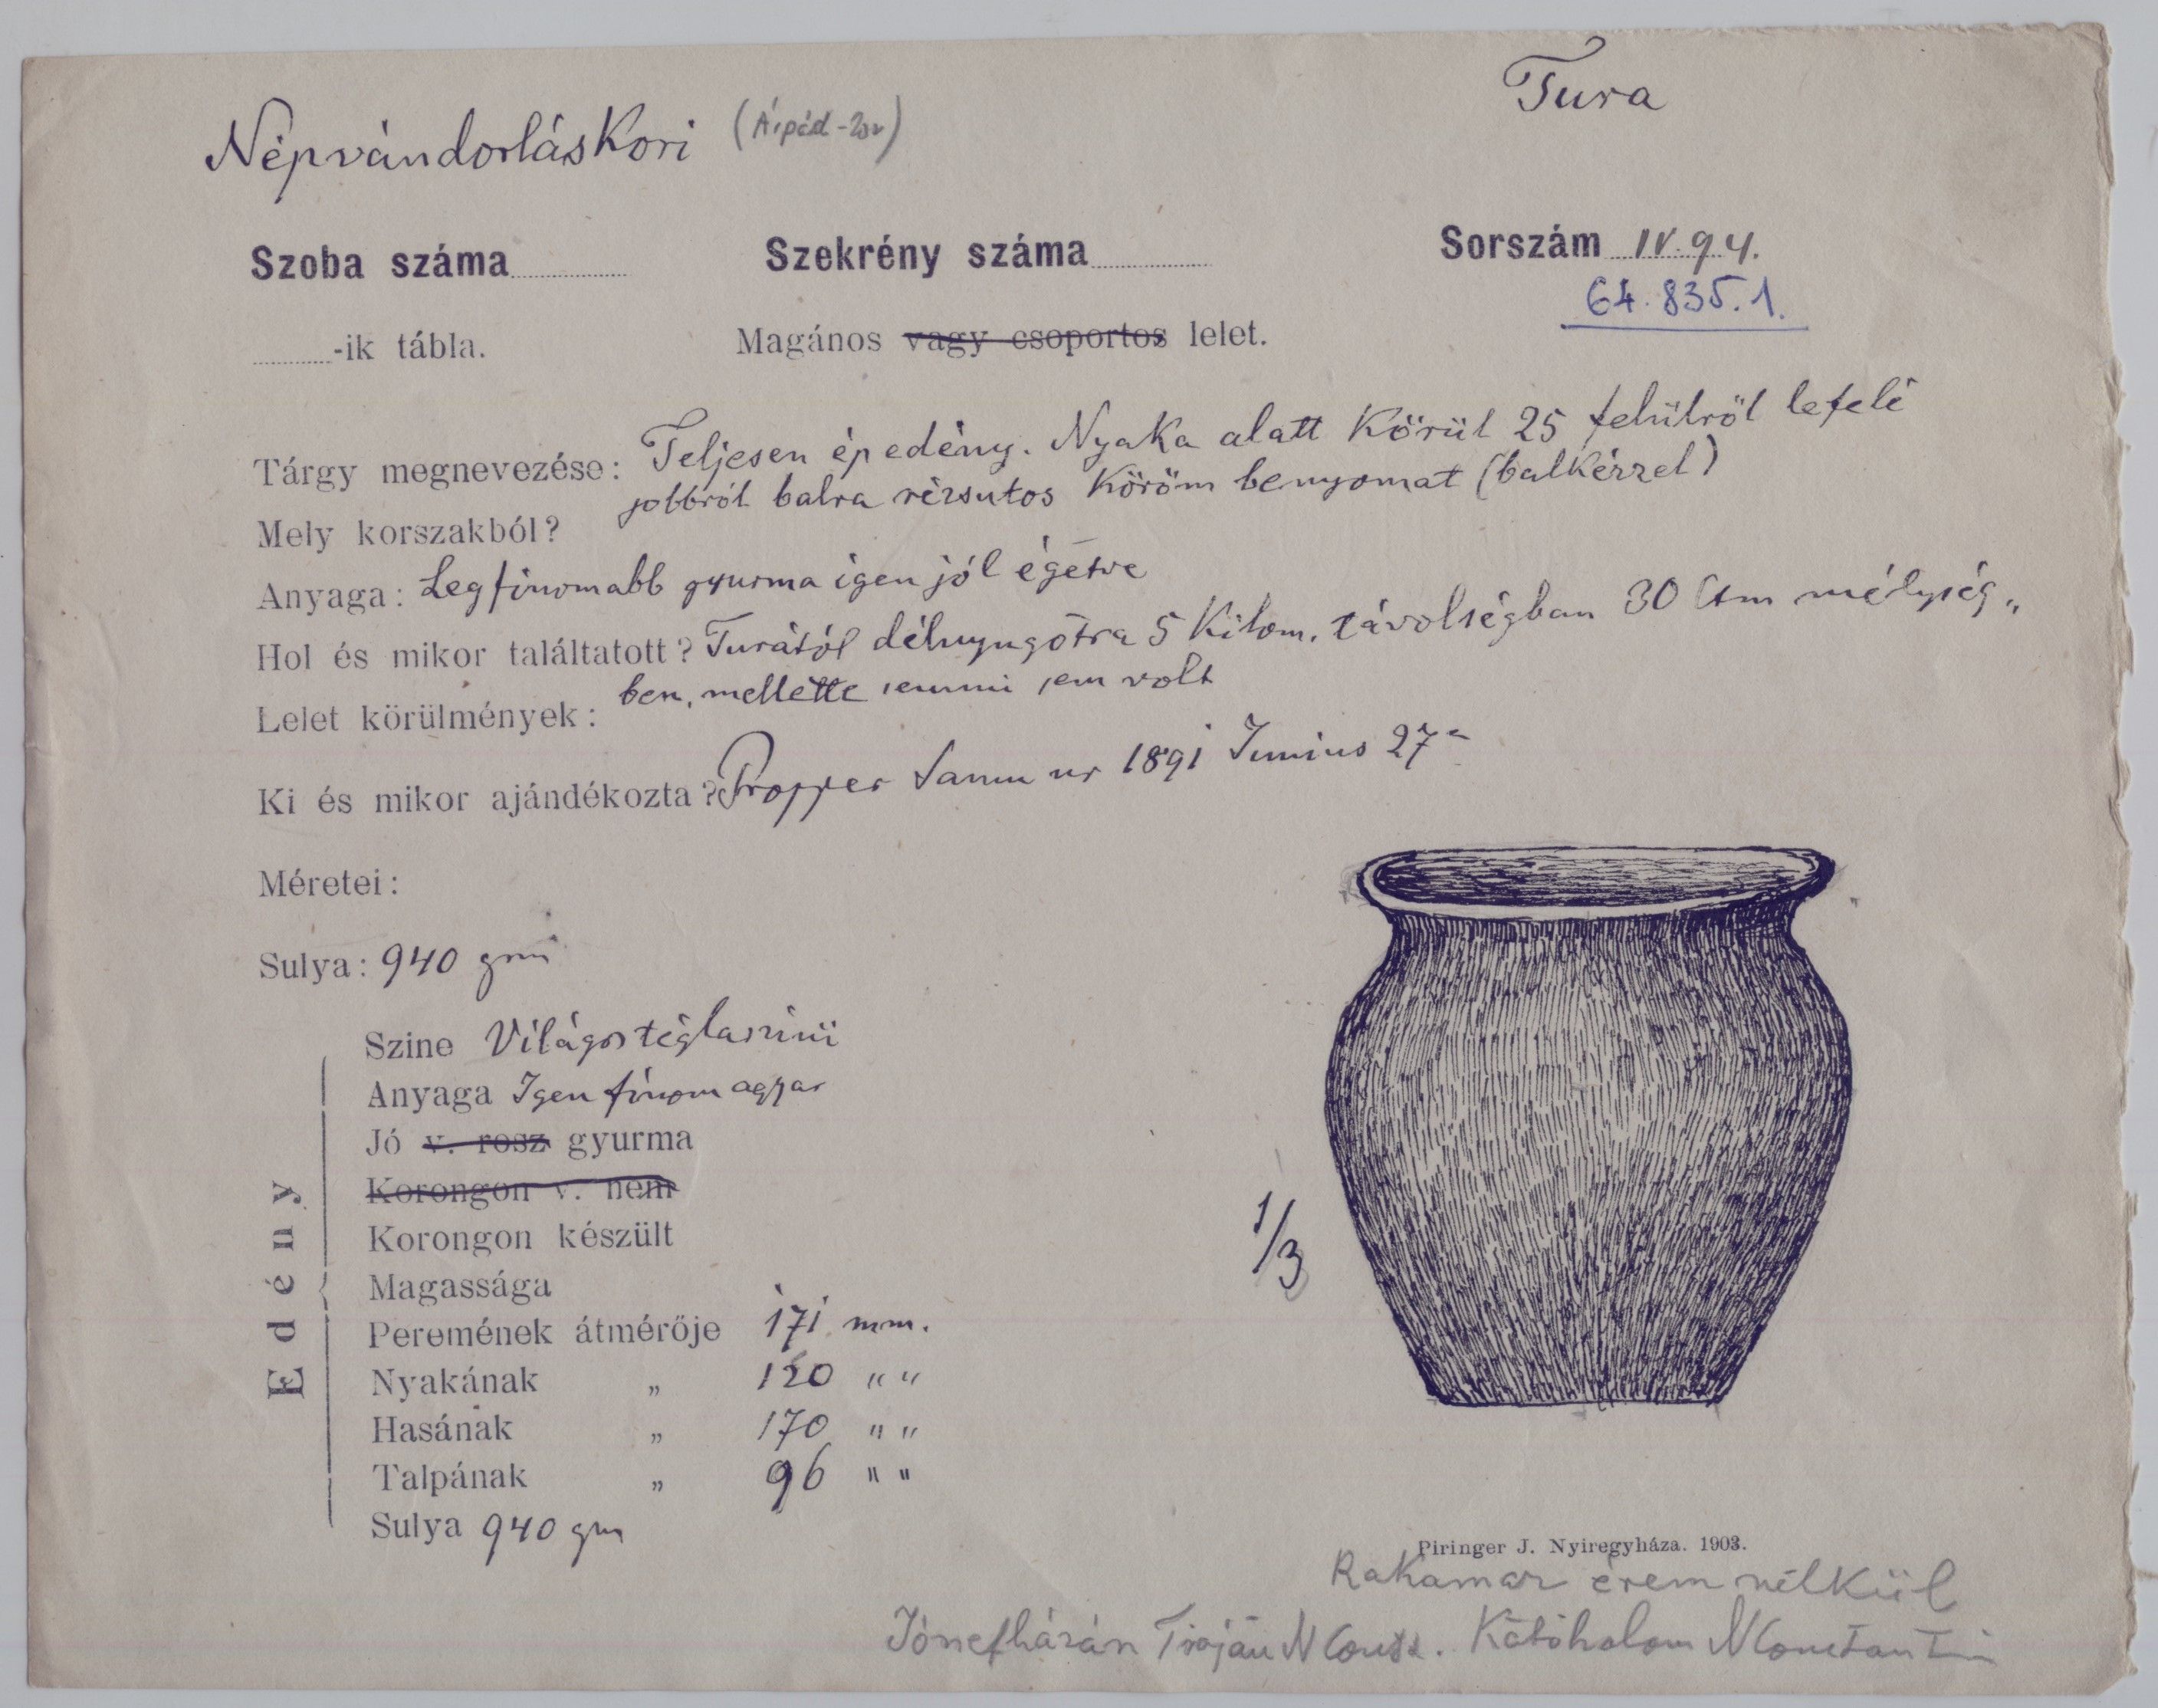 Tura
Népvándorláskori (Árpád-kor)
Szoba száma Szekrény száma Sorszám IV. 94.
64.835.1.
-ik tábla. Magános vagy csoportos lelet.
Tárgy megnevezése: Teljesen ép edény. Nyaka alatt Körül 25 felülről lefelé
jobbról balra rézsutos Köröm benyomat (balkézzel)
Mely korszakból?
Anyaga: Legfinomabb gyurma igen jól égetve
Hol és mikor találtatott? Turától délnyugotra 5 Kilom. távolságban 30 Ctm mélység„
ben, mellette semmi sem volt
Lelet körülmények:
Ki és mikor ajándékozta? Propper Samu ur 1891 Junius 27
Méretei:
Sulya: 940 gm
Edény
Szine Világos téglaszinü
Anyaga Igen finom agyag
Jó v. rosz gyurma
Korongon v. nem
Korongon készült
Magassága
Peremének átmérője 171 mm.
Nyakának „ 120 " "
Hasának „ 170 " "
Talpának „ 96 " "
Sulya 940 gm
1/3
Piringer J. Nyiregyháza. 1903.
Rakamaz érem nélkül
Józsefházán Troján N Const. Kótóhalom N Constantin